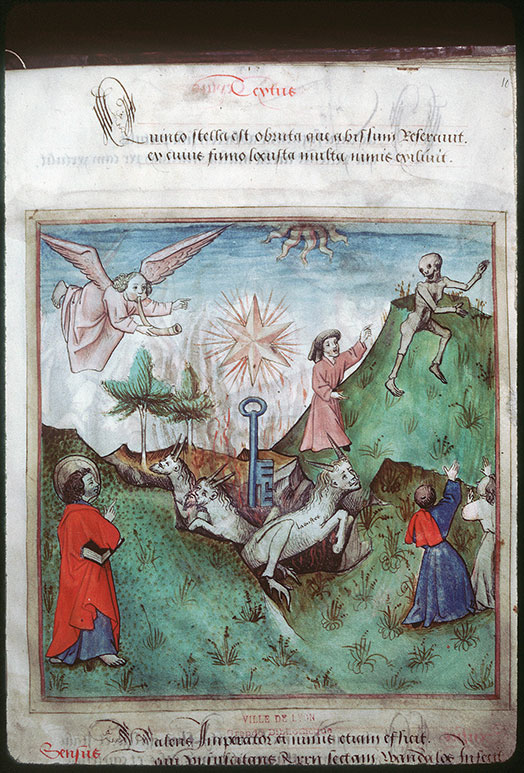 Textus
Quinto stella est obruta que abissum reseravit.
ex cuius fumo locusta multa nimis exiliit.
locustae
VILLE DE LYON
Sensus
Valens Imperator et nimis etiam efficit.
qui
sectam Wandalos infecit